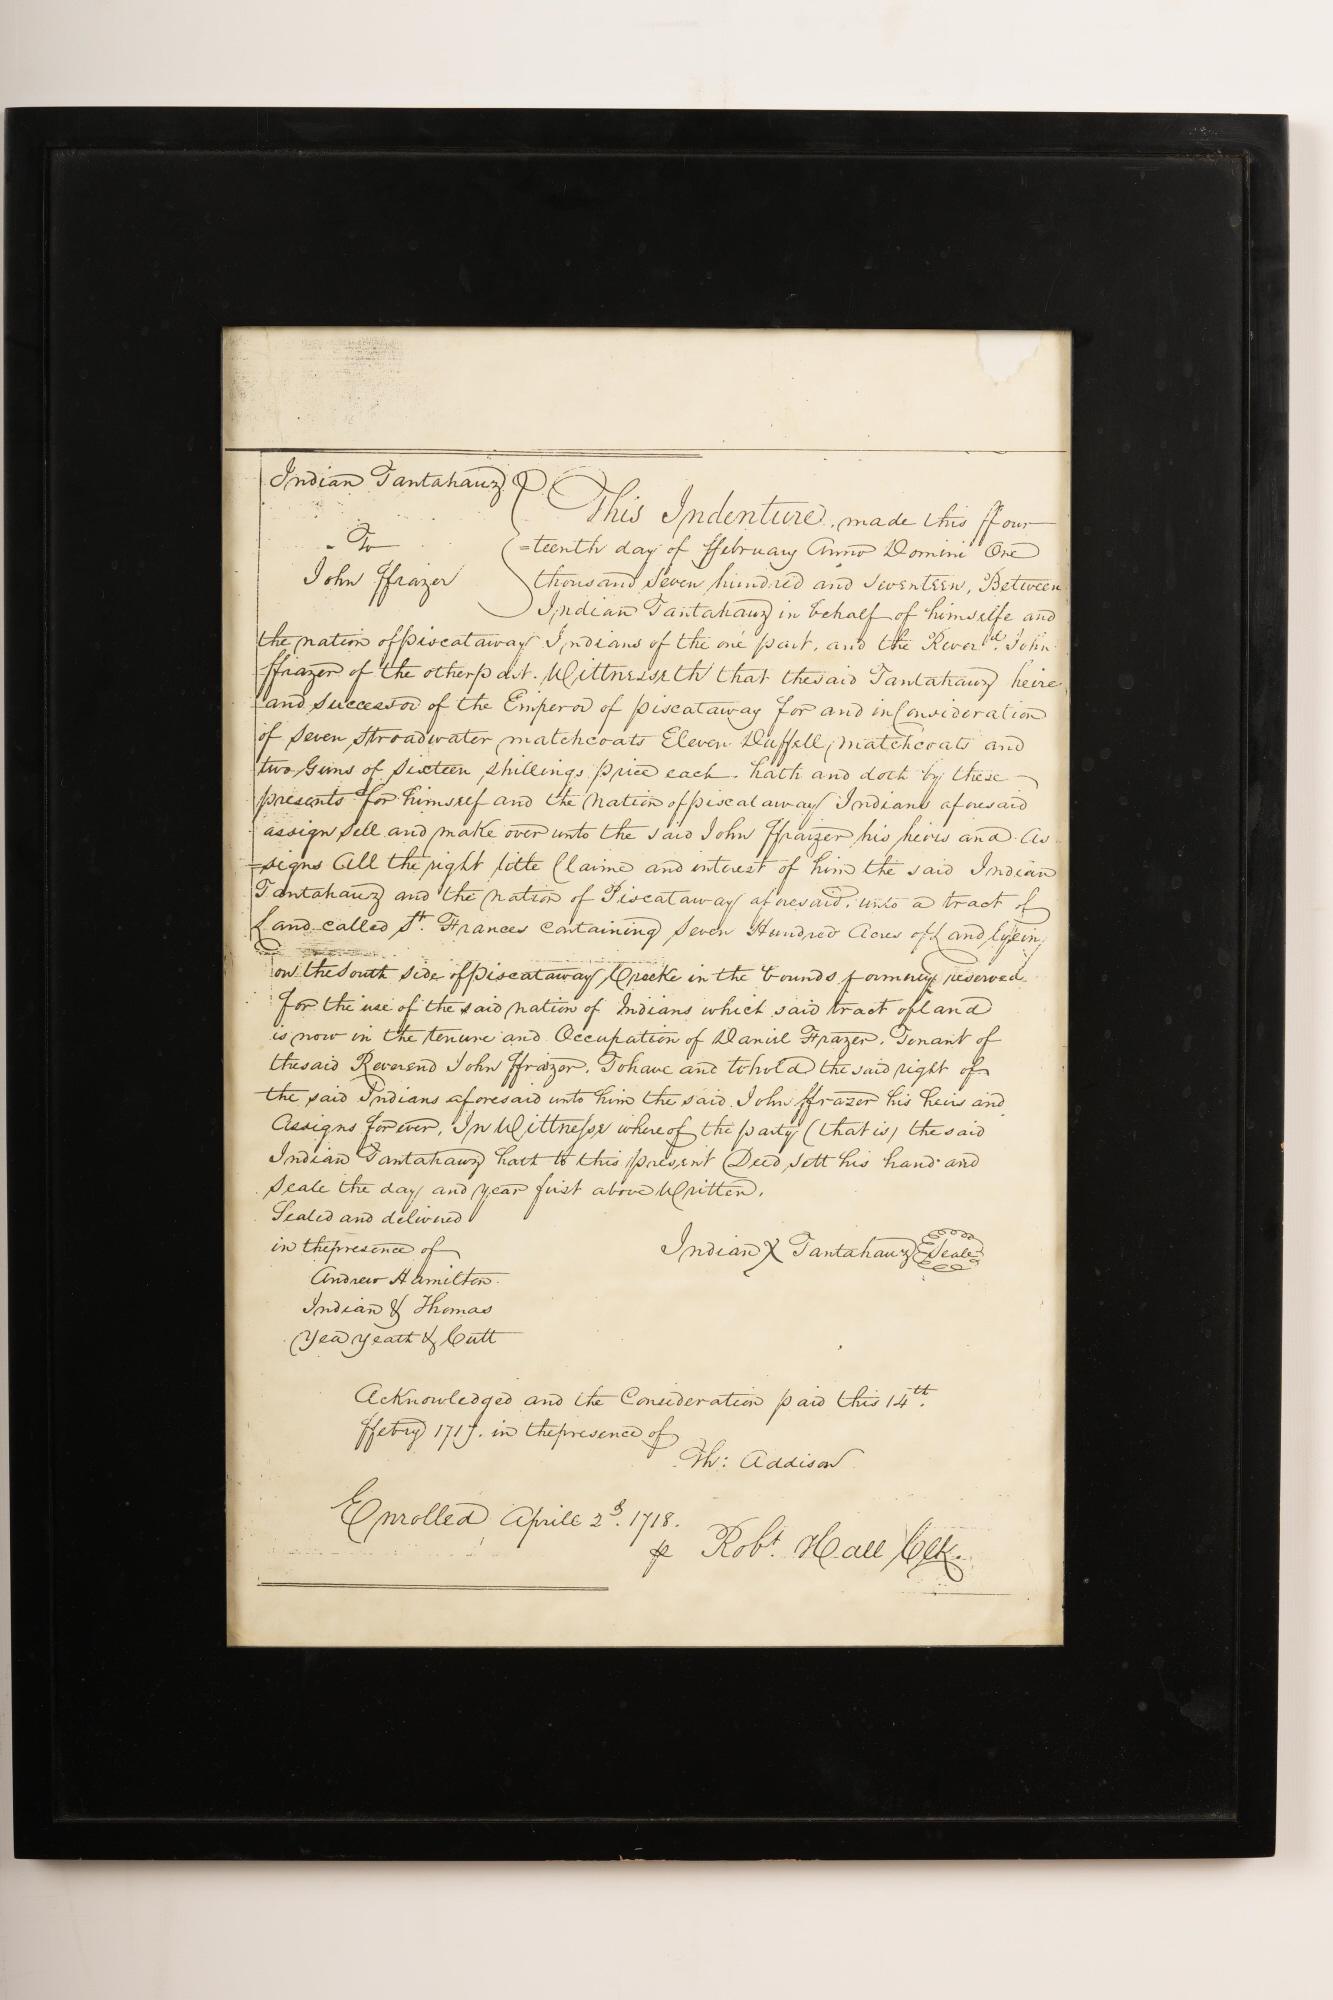 Indian Tantahauz
To
John Ffrazer
This Indenture, made this ffour
=teenth day of ffebruary Anno Domini One
thousand Seven hundred and Seventeen, Between
Indian Tantahauz in behalf of himselfe and
the nation of piscataway Indians of the one part, and the Reverd. John
ffrazer of the other part. Wittnesseth that the said Tantahauz heire
and Successor of the Emperor of piscataway for and in Consideration
of Seven Stroadwater matchcoats Eleven Duffell matchcoats and
two Guns of Sixteen Shillings price each. hath and doth by these
presents for himself and the Nation of piscataway Indians aforesaid
assign Sell and make over unto the said John Ffraizer his heirs and As
=signs All the right title Claime and interest of him the said Indian
Tantahauz and the nation of Piscataway aforesaid, unto a tract of
Land called St. Frances Containing Seven Hundred Acres of Land lyein
on the South side of piscataway Creeke in the bounds formerly reserved
for the use of the said nation of Indians which said tract of land
is now in the tenure and Occupation of Daniel Frazer, Tenant of
the said Reverend John Ffraizor. To have and to hold the said right of
the said Indians aforesaid unto him the said John ffrazer his heirs and
Assigns for ever, In Wittnesse whereof the party (that is) the said
Indian Tantahauz hath to this present Deed, Sett his hand and
Seale the day and year first above Written.
Sealed and delivered
in the presence of
Indian X Tantahauz Seale
Andrew Hamilton
Indian & Thomas
Yea Yeath & Cutt
Acknowledged and the Consideration paid this 14th.
ffebry 1717. in the presence of
Th: Addison
Enrolled Aprile 2d. 1718.
Robt. Hall Clk.